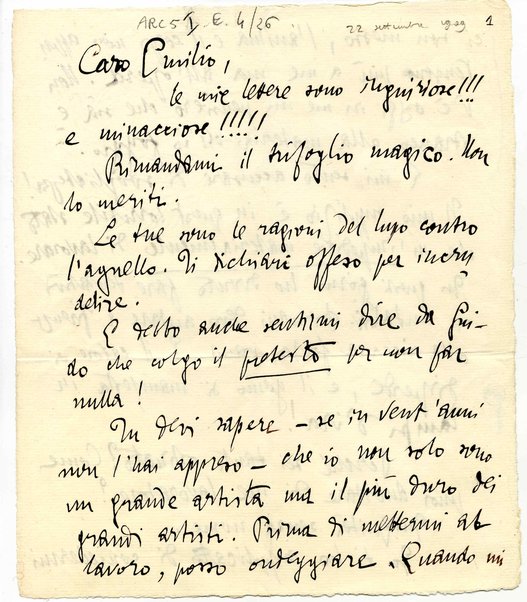 ARC 5 I. E. 4/26 22 settembre 1909 1
Caro Emilio,
le mie lettere sono ingiuriose!!!
e minacciose!!!!!
Rimandami il trifoglio magico. Non
lo meriti.
Le tue sono le ragioni del lupo contro
l'agnello. Ti dichiari offeso per incru
delire.
E debbo anche sentirmi dire da Gui-
do che colgo il pretesto per non far
nulla!
Tu devi sapere – se in vent'anni
non l'hai appreso – che io non solo sono
un grande artista ma il più duro dei
grandi artisti. Prima di mettermi al
lavoro, posso ondeggiare. Quando mi